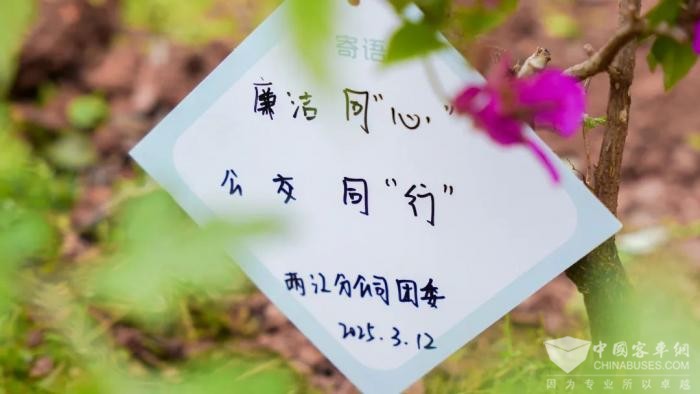 寄语
廉洁 同“心”
公交 同“行”
两江分公司团委
2025.3.12
中国客车网
CHINABUSES.COM
因为专业所以卓越